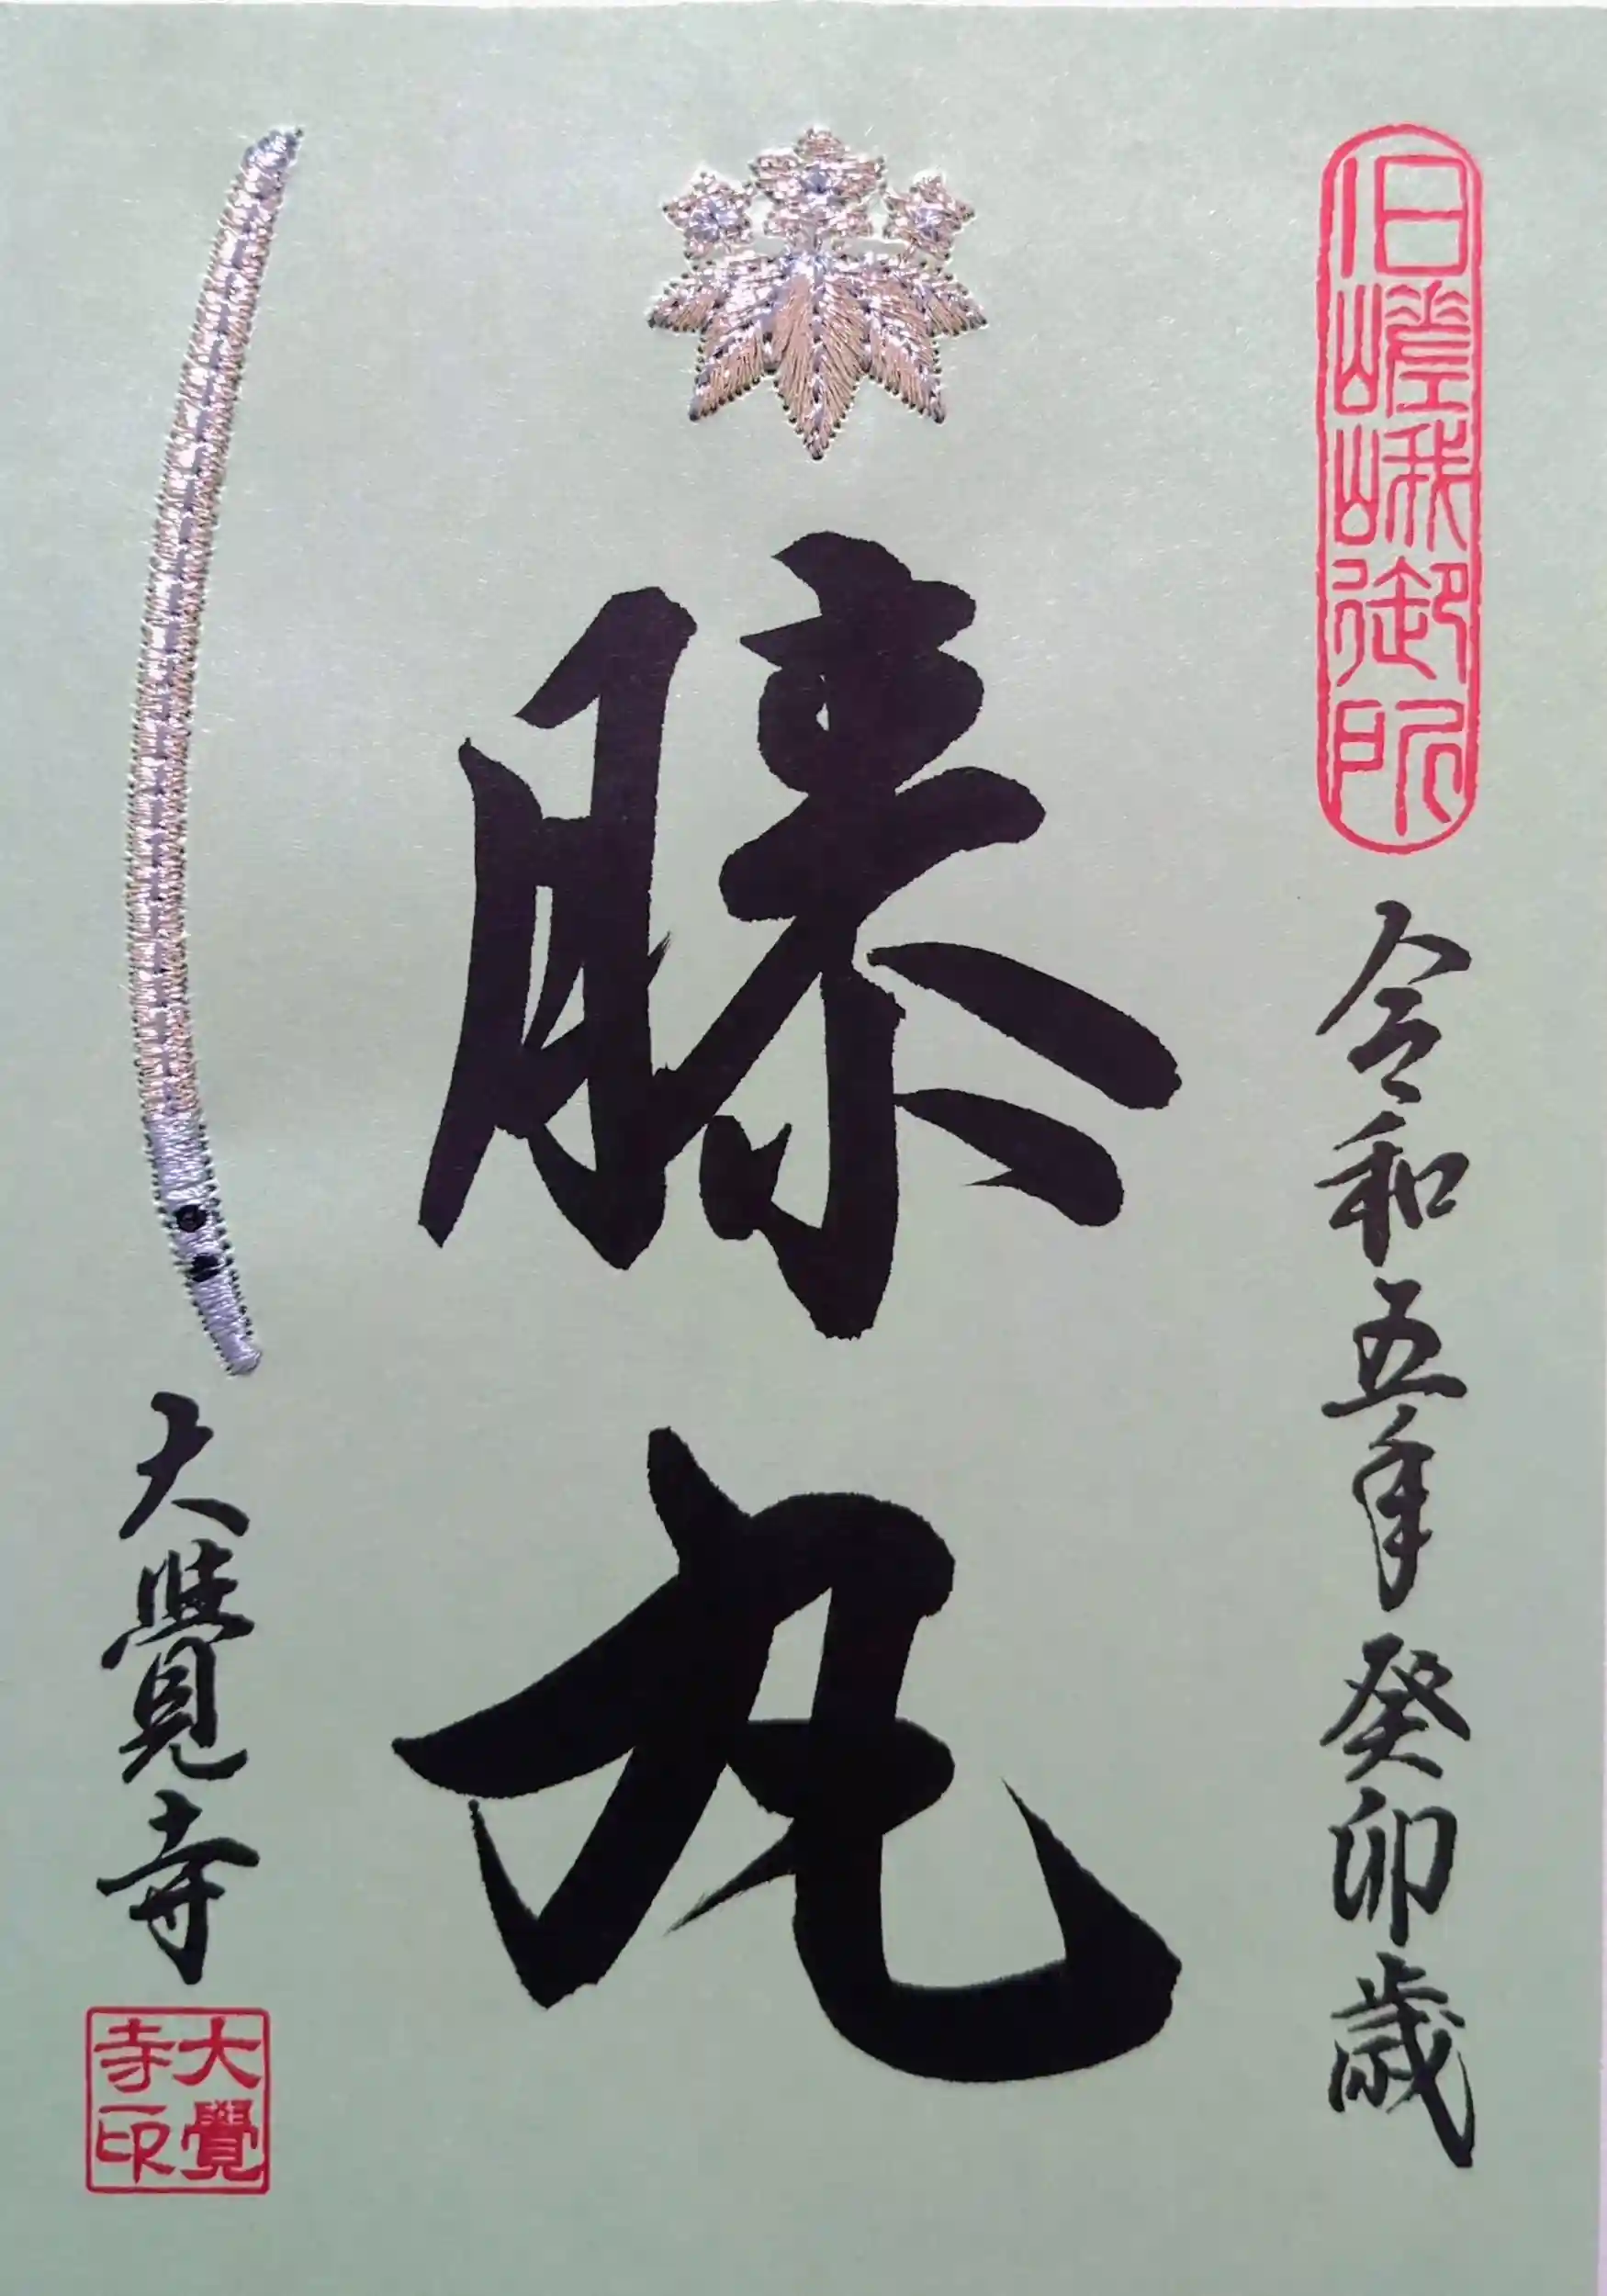 旧嵯峨御所
令和五年 癸卯歳
膝丸
大覺寺
大覺寺印